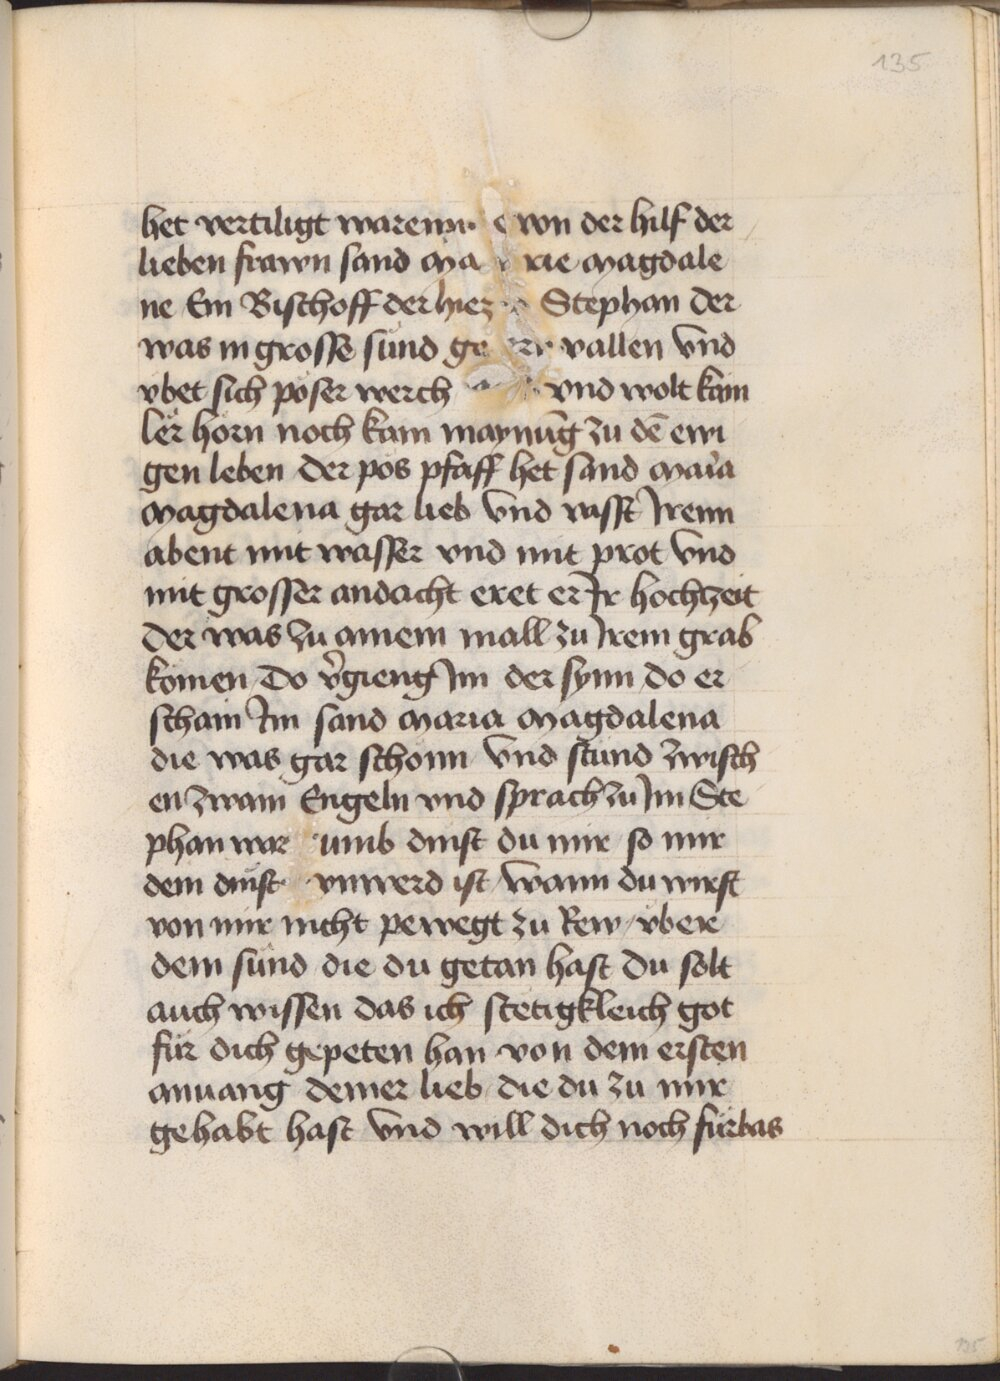 135
het vertiligt warenn von der hilf der
lieben frawn sand Ma rie Magdale
ne Ein Bischoff der hiez Stephan der
was in grosse sünd ge vallen vnd
vbet sich poser werch vnd wolt kain
ler horn noch kain maynūg zu dē ewi
gen leben der pos pfaff het sand Maria
Magdalena gar lieb vnd vasst Irenn
abent mit wasser vnd mit prot vnd
mit grosser andacht eret er Ir hochtzeit
der was zu ainem mall zu Irem grab
komen Do v̓gieng Im der synn do er
schain Im sand Maria Magdalena
die was gar schonn vnd stund zwisch
en zwain Engeln vnd sprach zu Im Ste
phan war umb dinst du mir so mir
dein dinst vnwerd ist wann du wirst
von mir nicht pewegt zu Rew vber
dein sünd die du getan hast Du solt
auch wissen das ich stetigkleich got
für dich gepeten han von dem ersten
anuang deiner lieb die du zu mir
gehabt hast vnd will dich noch fürbas
135